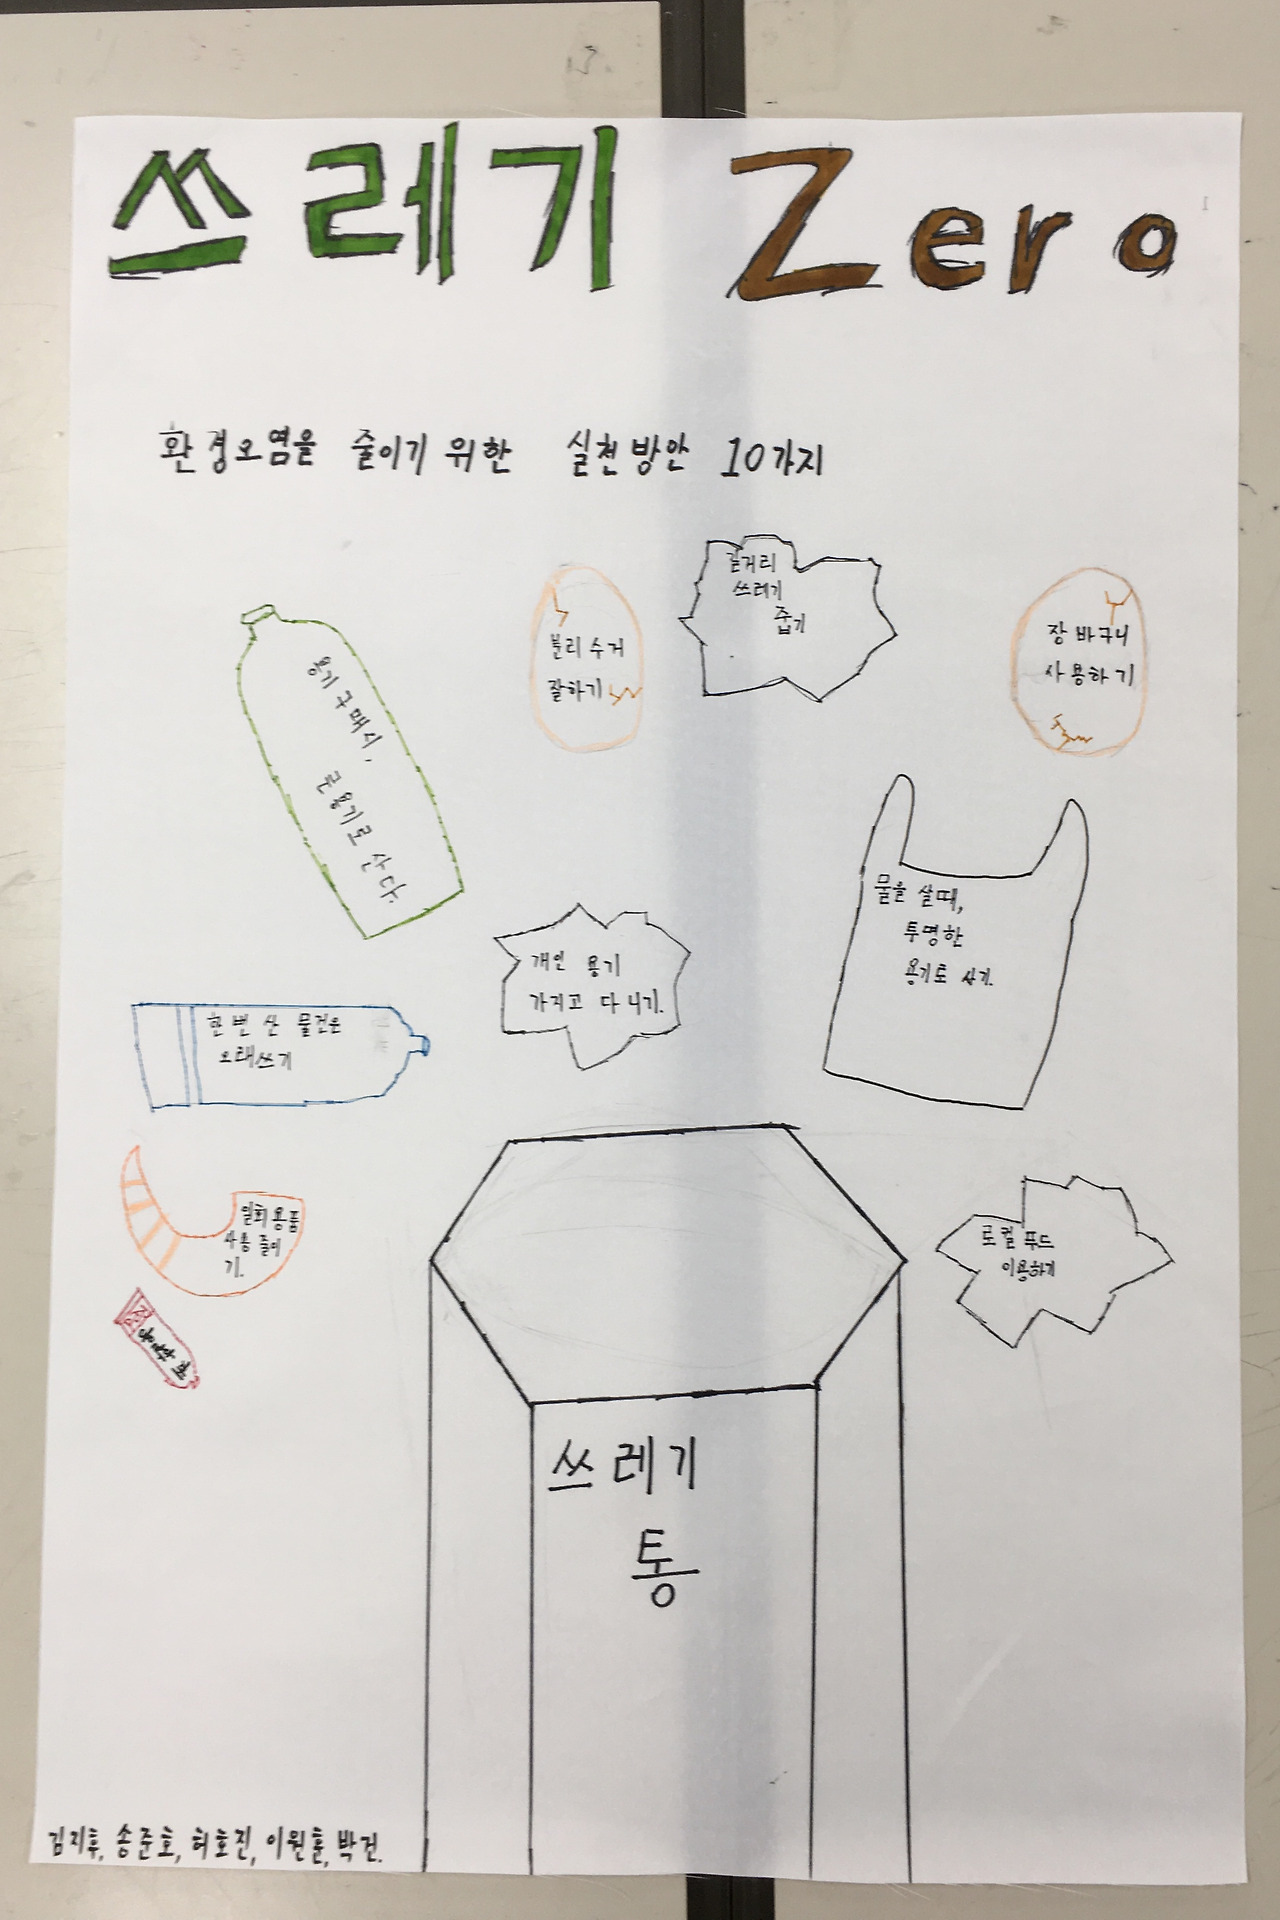 쓰레기 Zero
환경오염을 줄이기 위한 실천방안 10가지
길거리
쓰레기
줍기
분리수거
잘하기
장바구니
사용하기
용기구매시,
큰용기로 산다.
물을 살때,
투명한
용기로 사기.
개인 용기
가지고 다니기.
한번 산 물건은
오래쓰기
일회용품
사용 줄이
기.
로컬 푸드
이용하기
쓰레기
통
김지후, 송준호, 허호진, 이원훈, 박건.